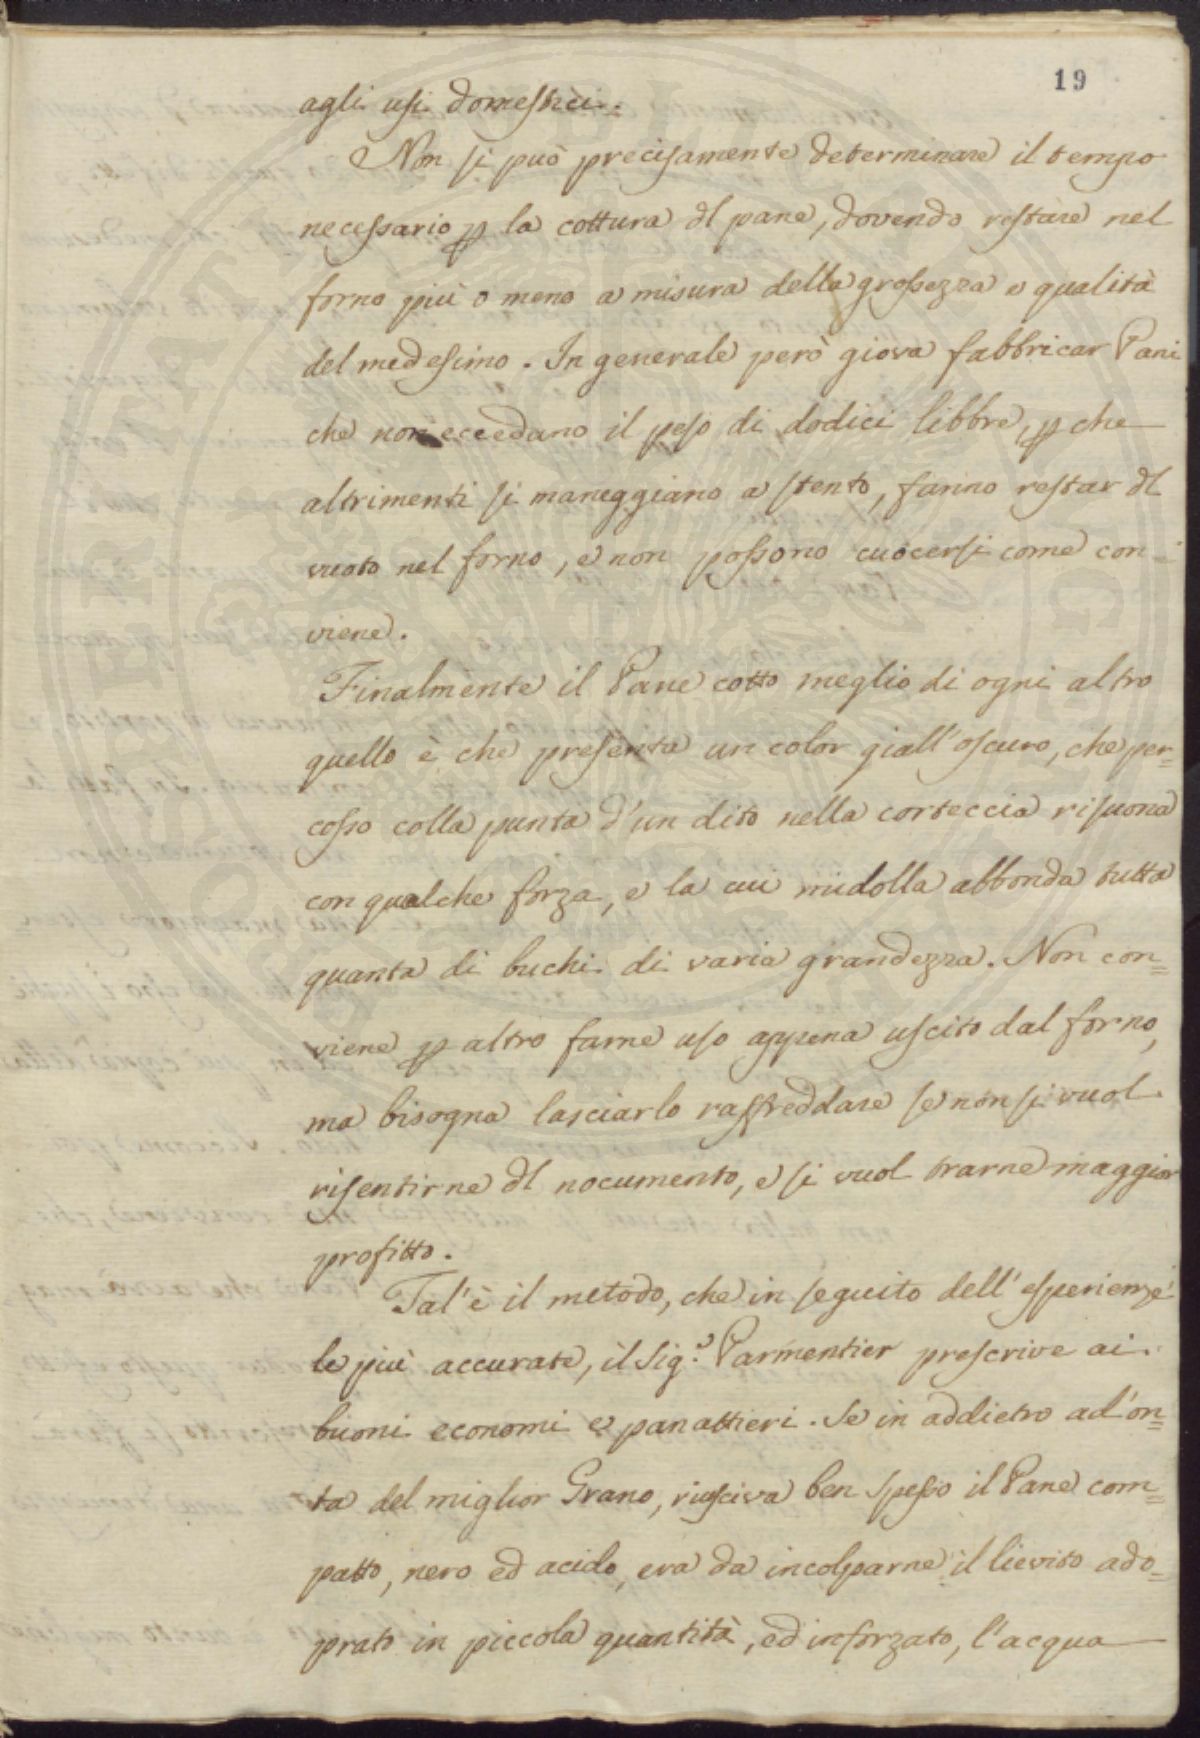 19
agli usi domestici.
Non si può precisamente determinare il tempo
necessario p la cottura dl pane, dovendo restare nel
forno più o meno a misura della grossezza e qualità
del medesimo. In generale però giova fabbricar Pani
che non eccedano il peso di dodici libbre, p che
altrimenti si maneggiano a stento, fanno restar dl
vuoto nel forno, e non possono cuocersi come con-
viene.
Finalmente il Pane cotto meglio di ogni altro
quello è che presenta un color giall'oscuro, che per=
cosso colla punta d'un dito nella corteccia risuona
con qualche forza, e la cui midolla abbonda tutta
quanta di buchi di varia grandezza. Non con=
viene p altro farne uso appena uscito dal forno,
ma bisogna lasciarlo raffreddare se non si vuol
risentirne dl nocumento, e si vuol trarne maggior
profitto.
Tal'è il metodo, che in seguito dell'esperienze
le più accurate, il Sig.e Parmentier prescrive ai
buoni economi e panattieri. Se in addietro ad'on=
ta del miglior Grano, riusciva ben spesso il Pane com=
patto, nero ed acido, era da incolparne il lievito ado=
prato in piccola quantità, ed inforzato, l'acqua